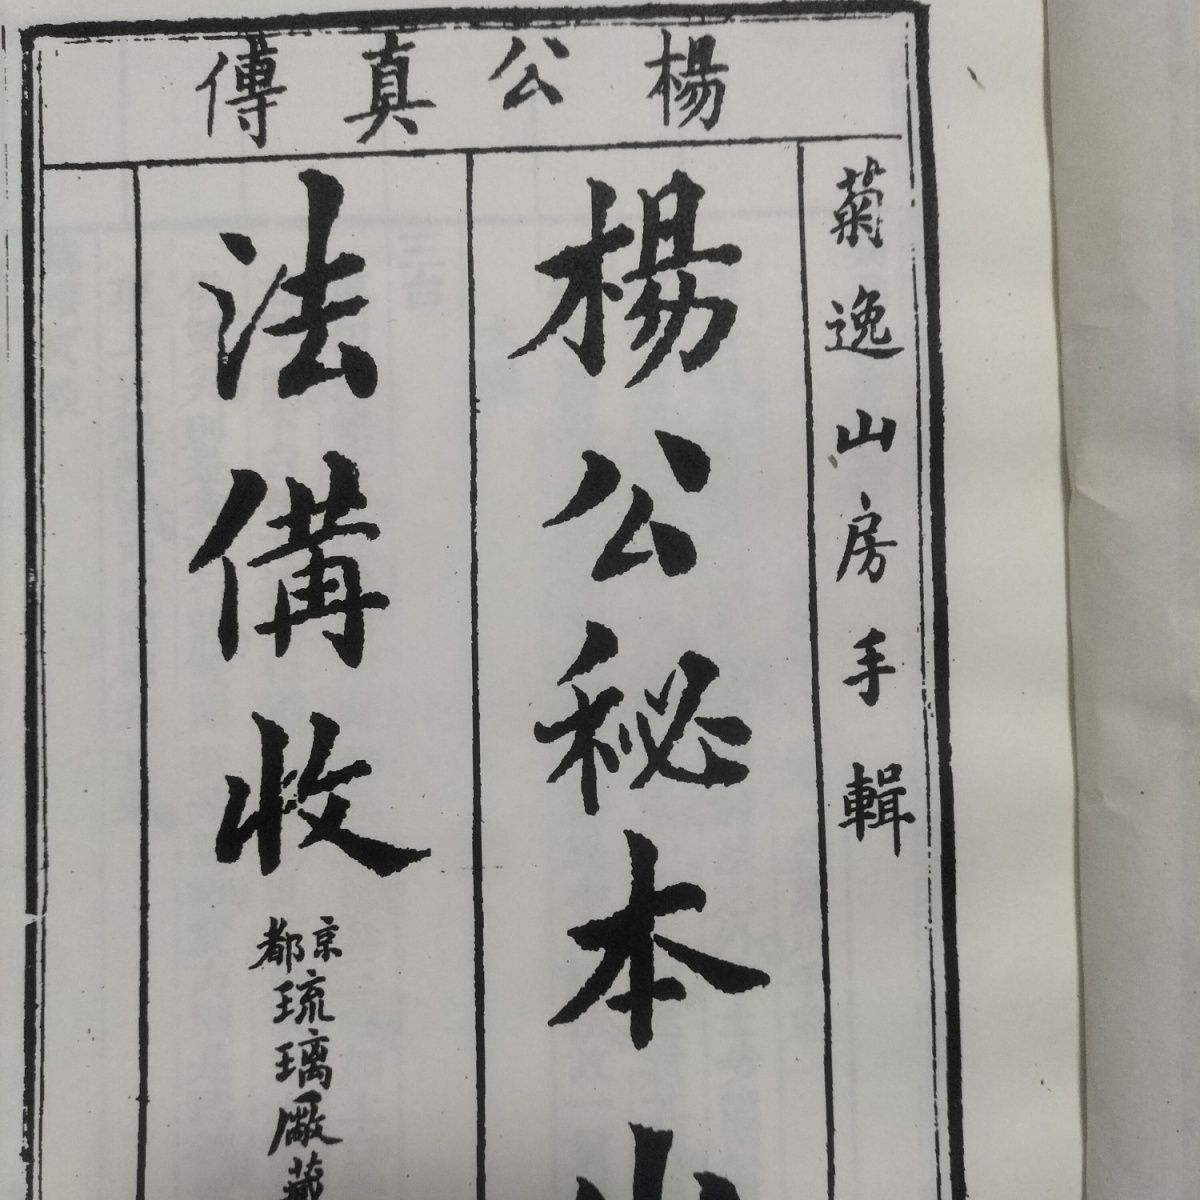 楊公真傳
菊逸山房手輯
楊公秘本山
法備收
京都琉璃厰藏